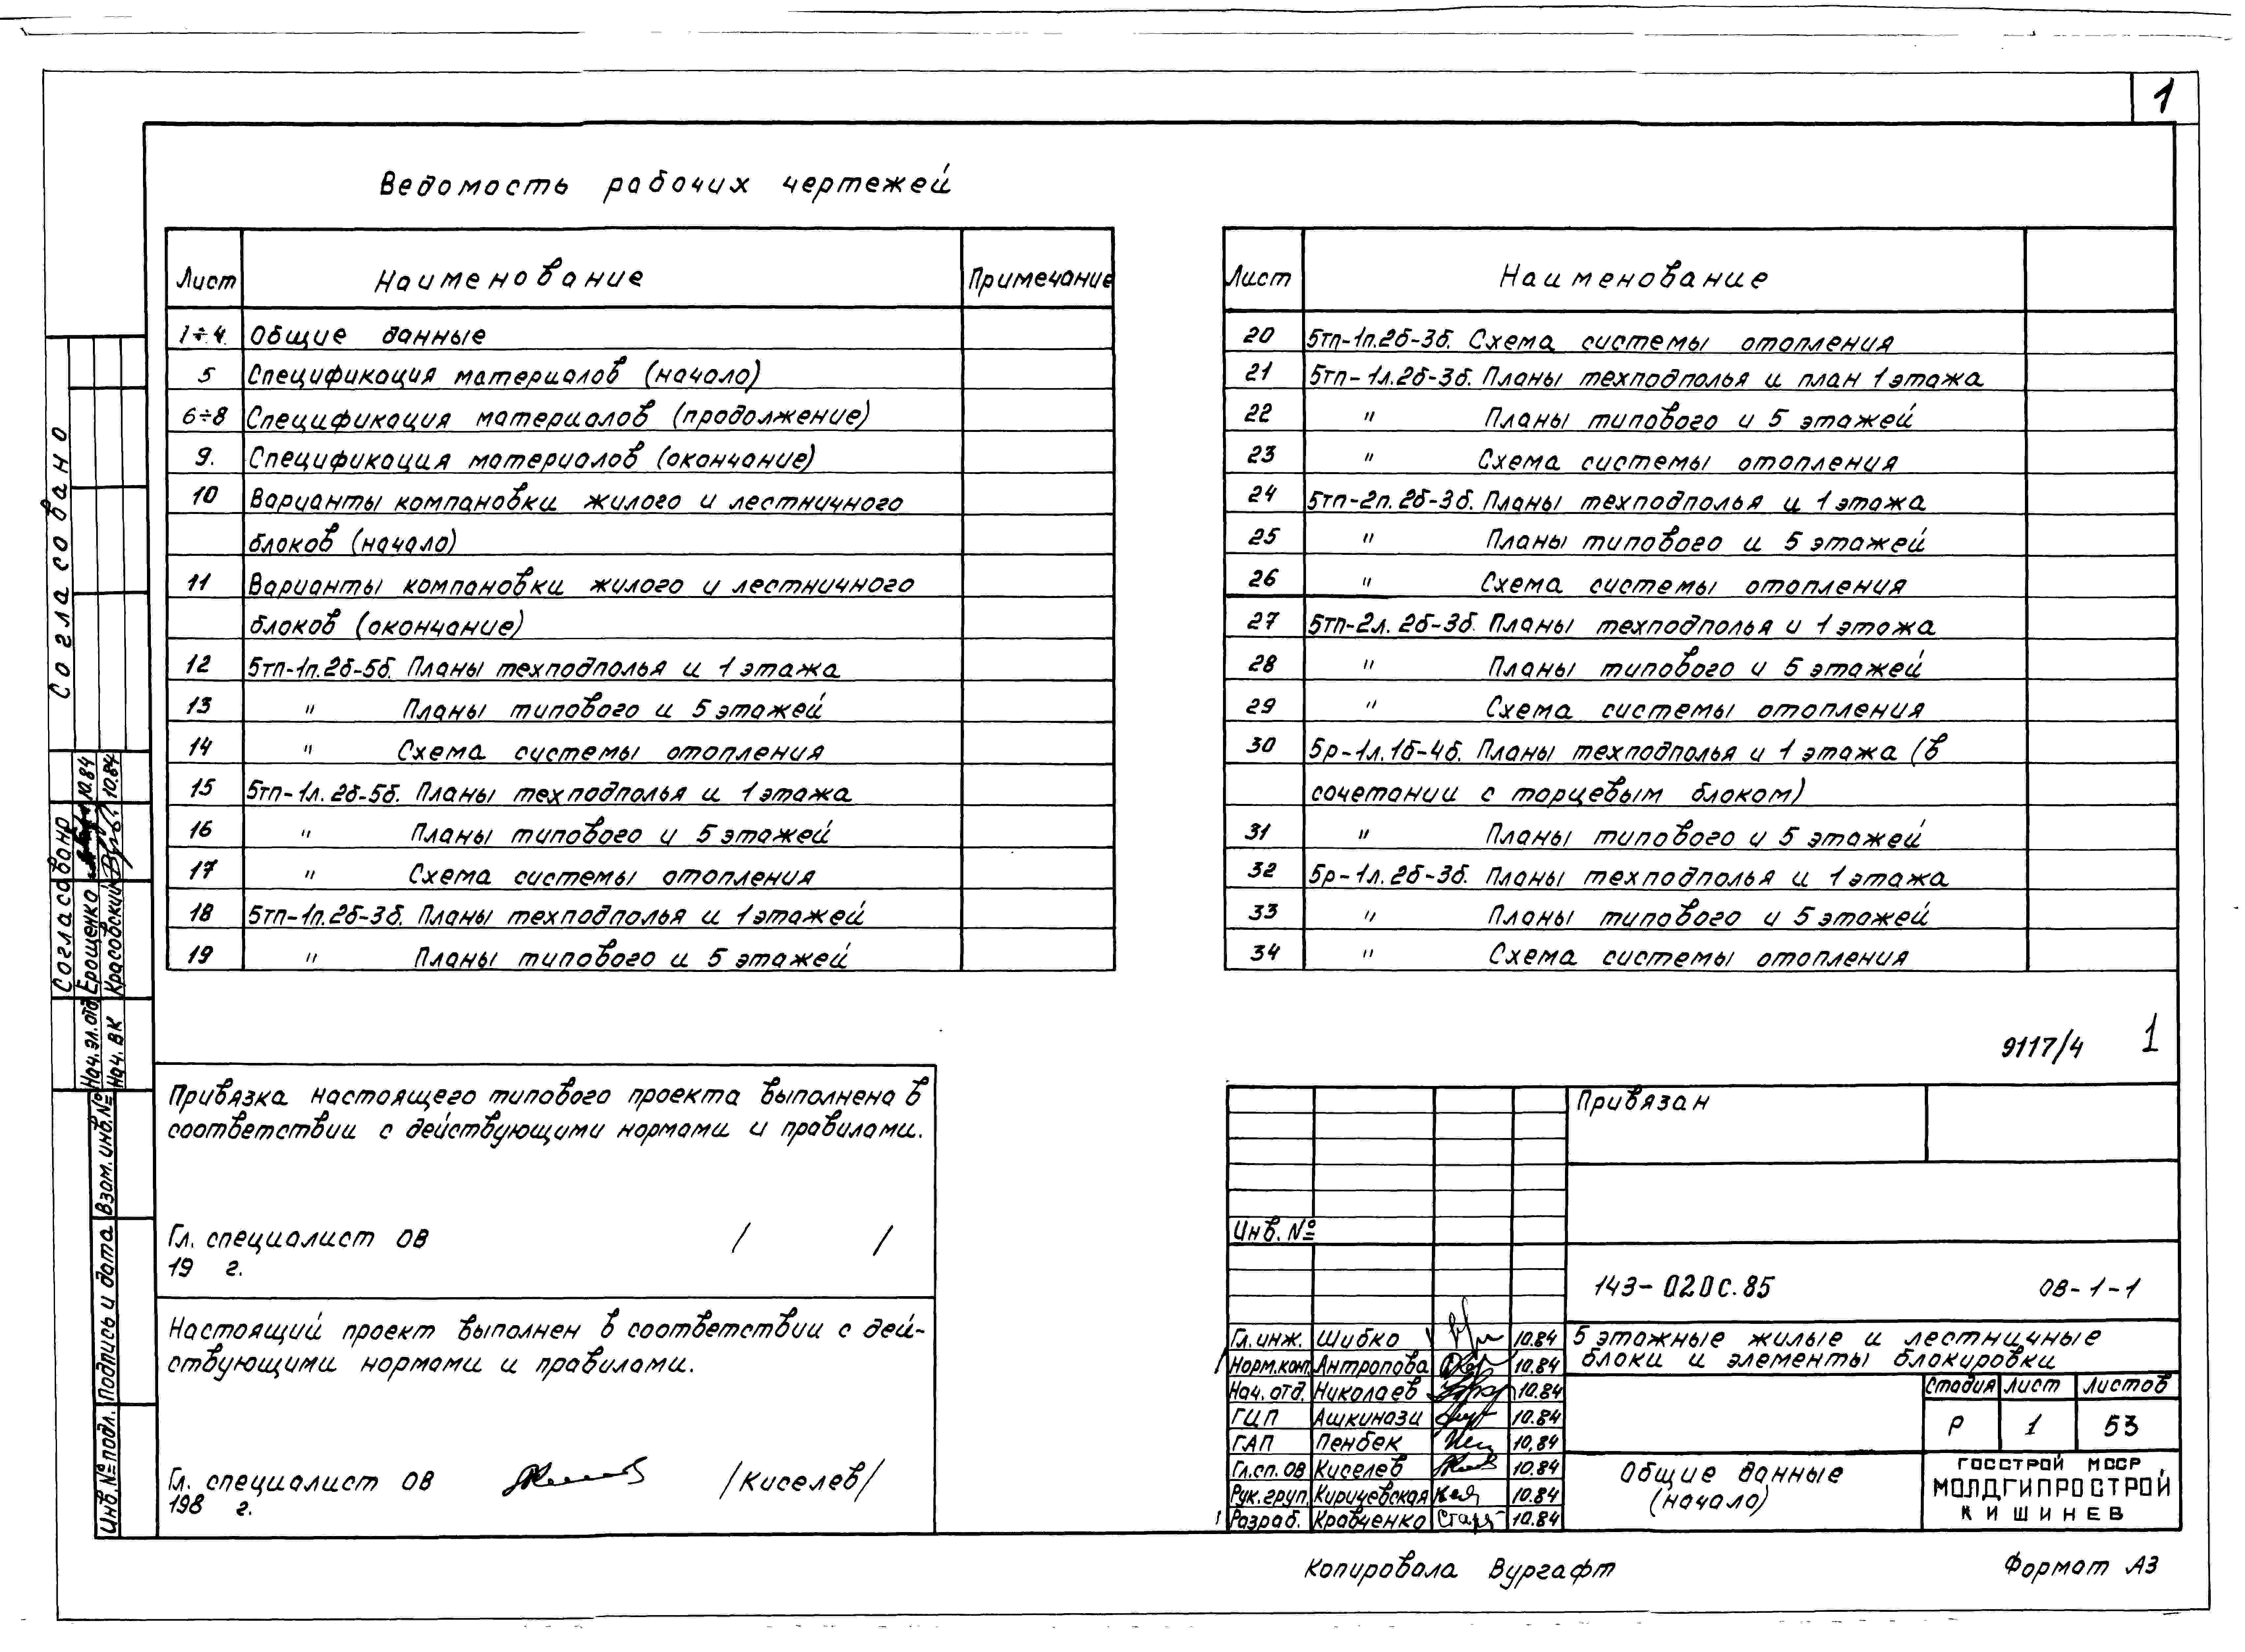 1
Ведомость рабочих чертежей
Лист Наименование Примечание
1÷4. Общие данные
5 Спецификация материалов (начало)
6÷8 Спецификация материалов (продолжение)
9. Спецификация материалов (окончание)
10 Варианты компановки жилого и лестничного
блоков (начало)
11 Варианты компановки жилого и лестничного
блоков (окончание)
12 5тп-1п.2б-5б. Планы техподполья и 1 этажа
13 " Планы типового и 5 этажей
14 " Схема системы отопления
15 5тп-1л.2б-5б. Планы техподполья и 1 этажа
16 " Планы типового и 5 этажей
17 " Схема системы отопления
18 5тп-1п.2б-3б. Планы техподполья и 1 этажей
19 " Планы типового и 5 этажей
Лист Наименование
20 5тп-1п.2б-3б. Схема системы отопления
21 5тп-1л.2б-3б. Планы техподполья и план 1 этажа
22 " Планы типового и 5 этажей
23 " Схема системы отопления
24 5тп-2п.2б-3б. Планы техподполья и 1 этажа
25 " Планы типового и 5 этажей
26 " Схема системы отопления
27 5тп-2л.2б-3б. Планы техподполья и 1 этажа
28 " Планы типового и 5 этажей
29 " Схема системы отопления
30 5р-1л.1б-4б. Планы техподполья и 1 этажа (в
сочетании с торцевым блоком)
31 " Планы типового и 5 этажей
32 5р-1л.2б-3б. Планы техподполья и 1 этажа
33 " Планы типового и 5 этажей
34 " Схема системы отопления
9117/4 1
Привязка настоящего типового проекта выполнена в
соответствии с действующими нормами и правилами.
Гл. специалист ОВ / /
19 г.
Настоящий проект выполнен в соответствии с дей-
ствующими нормами и правилами.
Гл. специалист ОВ /Киселев/
198 г.
Привязан
Инв. №
143-020с.85 ОВ-1-1
Гл. инж. Шибко 10.84
Норм.конт. Антропова 10.84
Нач. отд. Николаев 10.84
ГИП Ашкинази 10.84
ГАП Пенбек 10.84
Гл.сп. ОВ Киселев 10.84
Рук. груп. Киричевская 10.84
Разраб. Кравченко 10.84
5 этажные жилые и лестничные
блоки и элементы блокировки
Стадия Лист Листов
Р 1 53
Общие данные
(начало)
ГОССТРОЙ МССР
МОЛДГИПРОСТРОЙ
КИШИНЕВ
Копировала Вургафт
Формат А3
Согласовано
Согласовано
Нач. эл. отд. Ерощенко 10.84
Нач. ВК Красовский 10.84
Взам. инв. №
Подпись и дата
Инв. № подл.